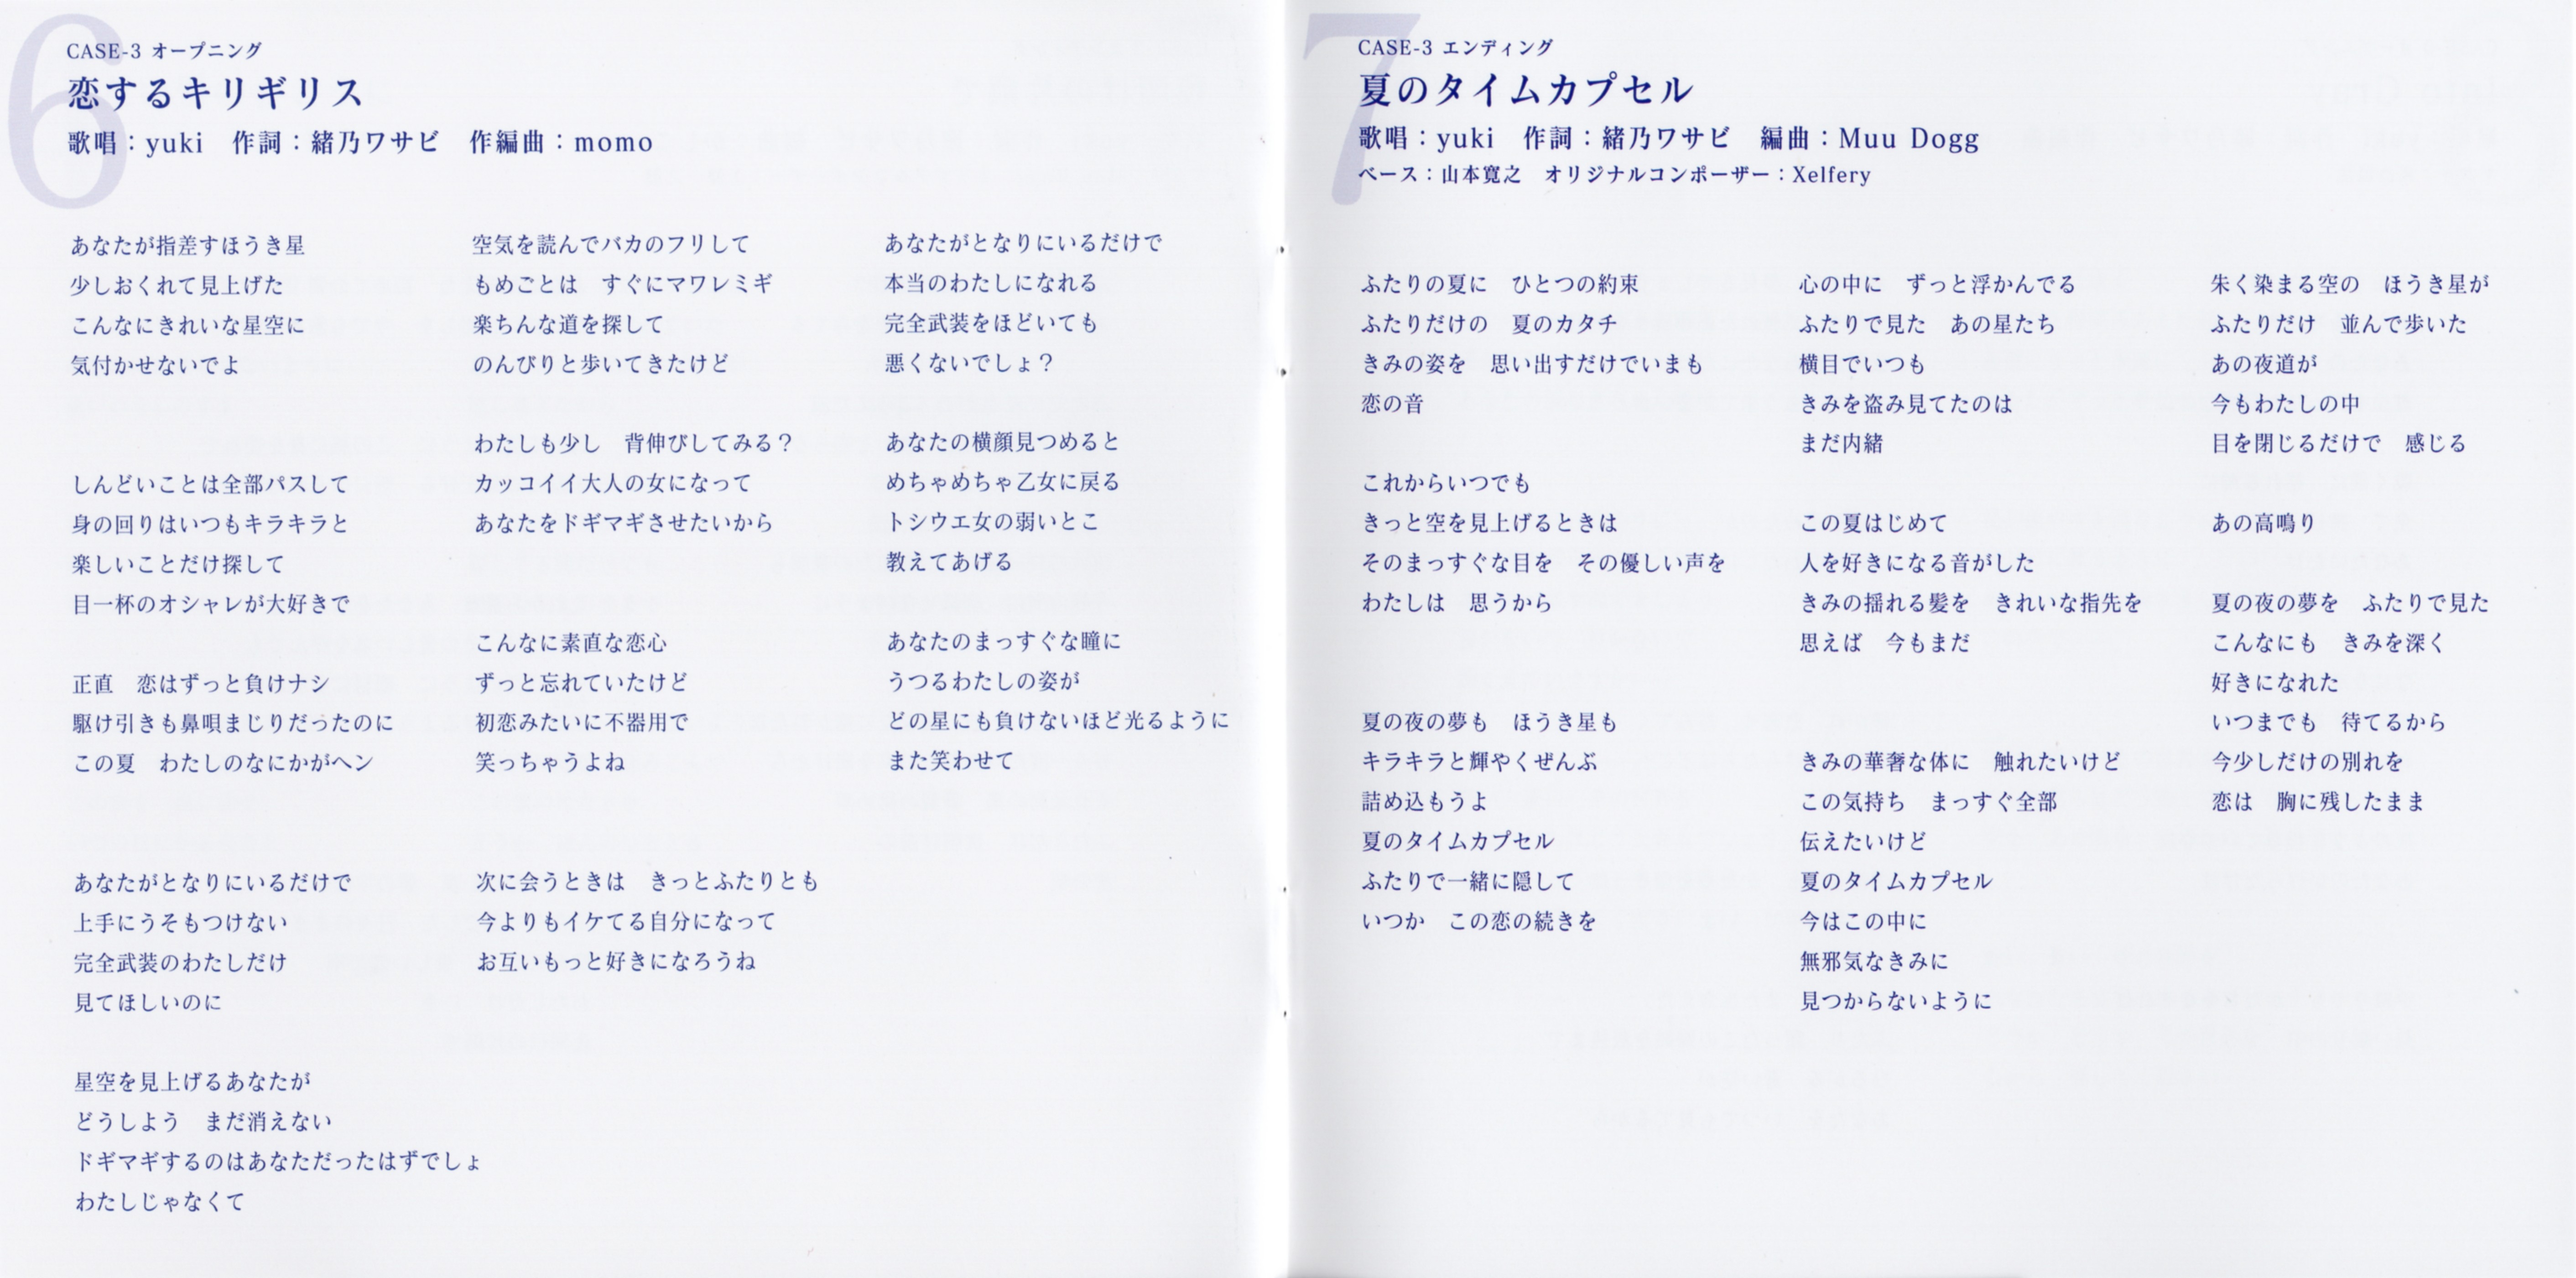 6
CASE-3 オープニング
恋するキリギリス
歌唱：yuki　作詞：緒乃ワサビ　作編曲：momo
あなたが指差すほうき星
少しおくれて見上げた
こんなにきれいな星空に
気付かせないでよ
しんどいことは全部パスして
身の回りはいつもキラキラと
楽しいことだけ探して
目一杯のオシャレが大好きで
正直　恋はずっと負けナシ
駆け引きも鼻唄まじりだったのに
この夏　わたしのなにかがヘン
あなたがとなりにいるだけで
上手にうそもつけない
完全武装のわたしだけ
見てほしいのに
星空を見上げるあなたが
どうしよう　まだ消えない
ドギマギするのはあなただったはずでしょ
わたしじゃなくて
空気を読んでバカのフリして
もめごとは　すぐにマワレミギ
楽ちんな道を探して
のんびりと歩いてきたけど
わたしも少し　背伸びしてみる？
カッコイイ大人の女になって
あなたをドギマギさせたいから
こんなに素直な恋心
ずっと忘れていたけど
初恋みたいに不器用で
笑っちゃうよね
次に会うときは　きっとふたりとも
今よりもイケてる自分になって
お互いもっと好きになろうね
あなたがとなりにいるだけで
本当のわたしになれる
完全武装をほどいても
悪くないでしょ？
あなたの横顔見つめると
めちゃめちゃ乙女に戻る
トシウエ女の弱いとこ
教えてあげる
あなたのまっすぐな瞳に
うつるわたしの姿が
どの星にも負けないほど光るように
また笑わせて
7
CASE-3 エンディング
夏のタイムカプセル
歌唱：yuki　作詞：緒乃ワサビ　編曲：Muu Dogg
ベース：山本寛之　オリジナルコンポーザー：Xelfery
ふたりの夏に　ひとつの約束
ふたりだけの　夏のカタチ
きみの姿を　思い出すだけでいまも
恋の音
これからいつでも
きっと空を見上げるときは
そのまっすぐな目を　その優しい声を
わたしは　思うから
夏の夜の夢も　ほうき星も
キラキラと輝やくぜんぶ
詰め込もうよ
夏のタイムカプセル
ふたりで一緒に隠して
いつか　この恋の続きを
心の中に　ずっと浮かんでる
ふたりで見た　あの星たち
横目でいつも
きみを盗み見てたのは
まだ内緒
この夏はじめて
人を好きになる音がした
きみの揺れる髪を　きれいな指先を
思えば　今もまだ
きみの華奢な体に　触れたいけど
この気持ち　まっすぐ全部
伝えたいけど
夏のタイムカプセル
今はこの中に
無邪気なきみに
見つからないように
朱く染まる空の　ほうき星が
ふたりだけ　並んで歩いた
あの夜道が
今もわたしの中
目を閉じるだけで　感じる
あの高鳴り
夏の夜の夢を　ふたりで見た
こんなにも　きみを深く
好きになれた
いつまでも　待てるから
今少しだけの別れを
恋は　胸に残したまま